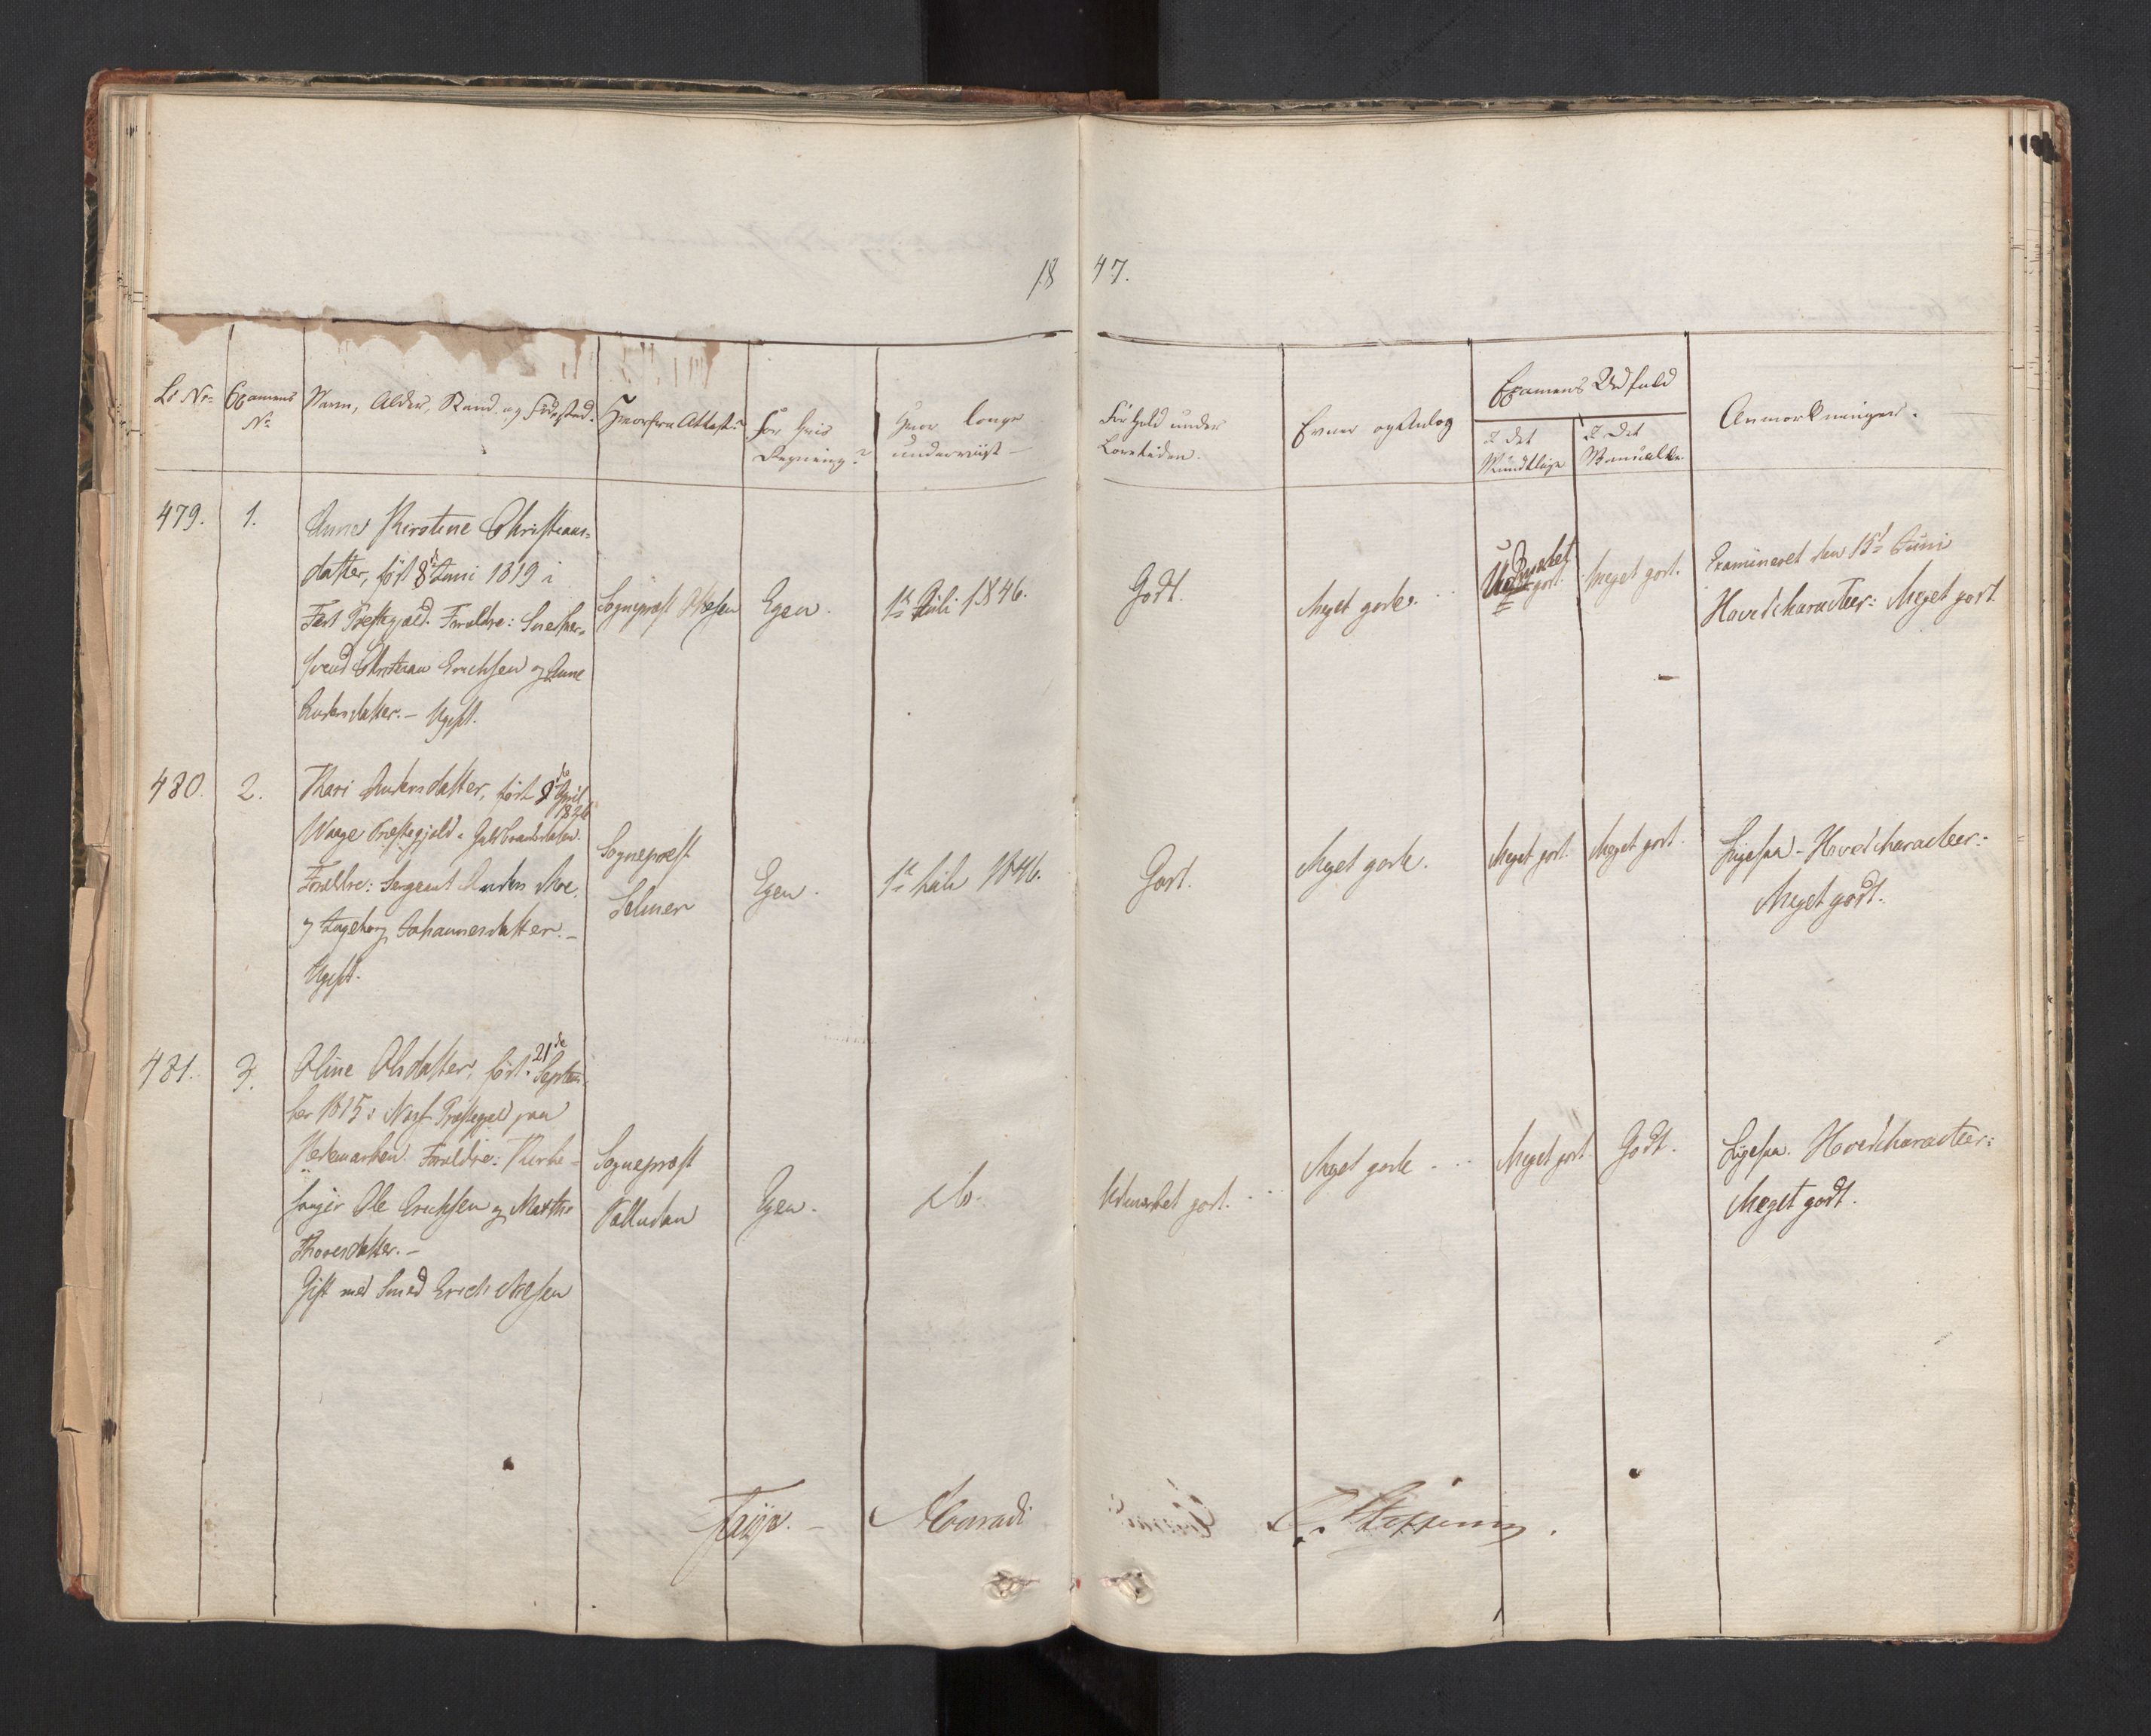 1847.
Lb No
Examens
No
Navn, Alder, Stand og Fødested.
Hvorfra Attest?
For hvis
Regning?
Hvor længe
underviist
Forhold under
Læretiden.
Evner og Anlæg
Examens Udfald
I det
Mundtlige
I Det
Manuelle.
Anmærkninger.
479.
1.
Anne Kirstine Christians-
datter, født 8de Juni 1819 i
Fets Præstegjæld. Forældre:
Svend Christian Erichsen og Anne
Andersdatter. – Ugift.
Sogneprest
Egen.
1ste Juli 1846.
Godt.
Meget gode.
Udmærket
godt.
Meget godt.
Examineret den 15d Juni
Hovedcharacteer: Meget godt.
480.
2.
Kari Andersdatter, født 8de April
182
Waage Præstegjeld i Guldbrandsdalen.
Forældre: Sergeant Anders Moe
og Ingeborg Johannesdatter. –
Ugift.
Sogneprest
Selmer
Egen.
1ste Juli 1846.
Godt.
Meget gode.
Meget godt.
Meget godt.
Ligesaa – Hovedcharacteer:
Meget godt.
481.
3.
Oline Olsdatter, født 21de Septem-
ber 1815 i Næss Præstegjeld paa
Hedemarken. Forældre: Kirke-
sanger Ole Erichsen og Marthe
Thoresdatter. –
Gift med Smed Erich Olesen
Sogneprest
Palludan
Egen.
do.
Udmærket godt.
Meget gode
Meget godt.
Godt.
Ligesaa. Hovedcharacteer:
Meget godt.
Faye. –
Conradi